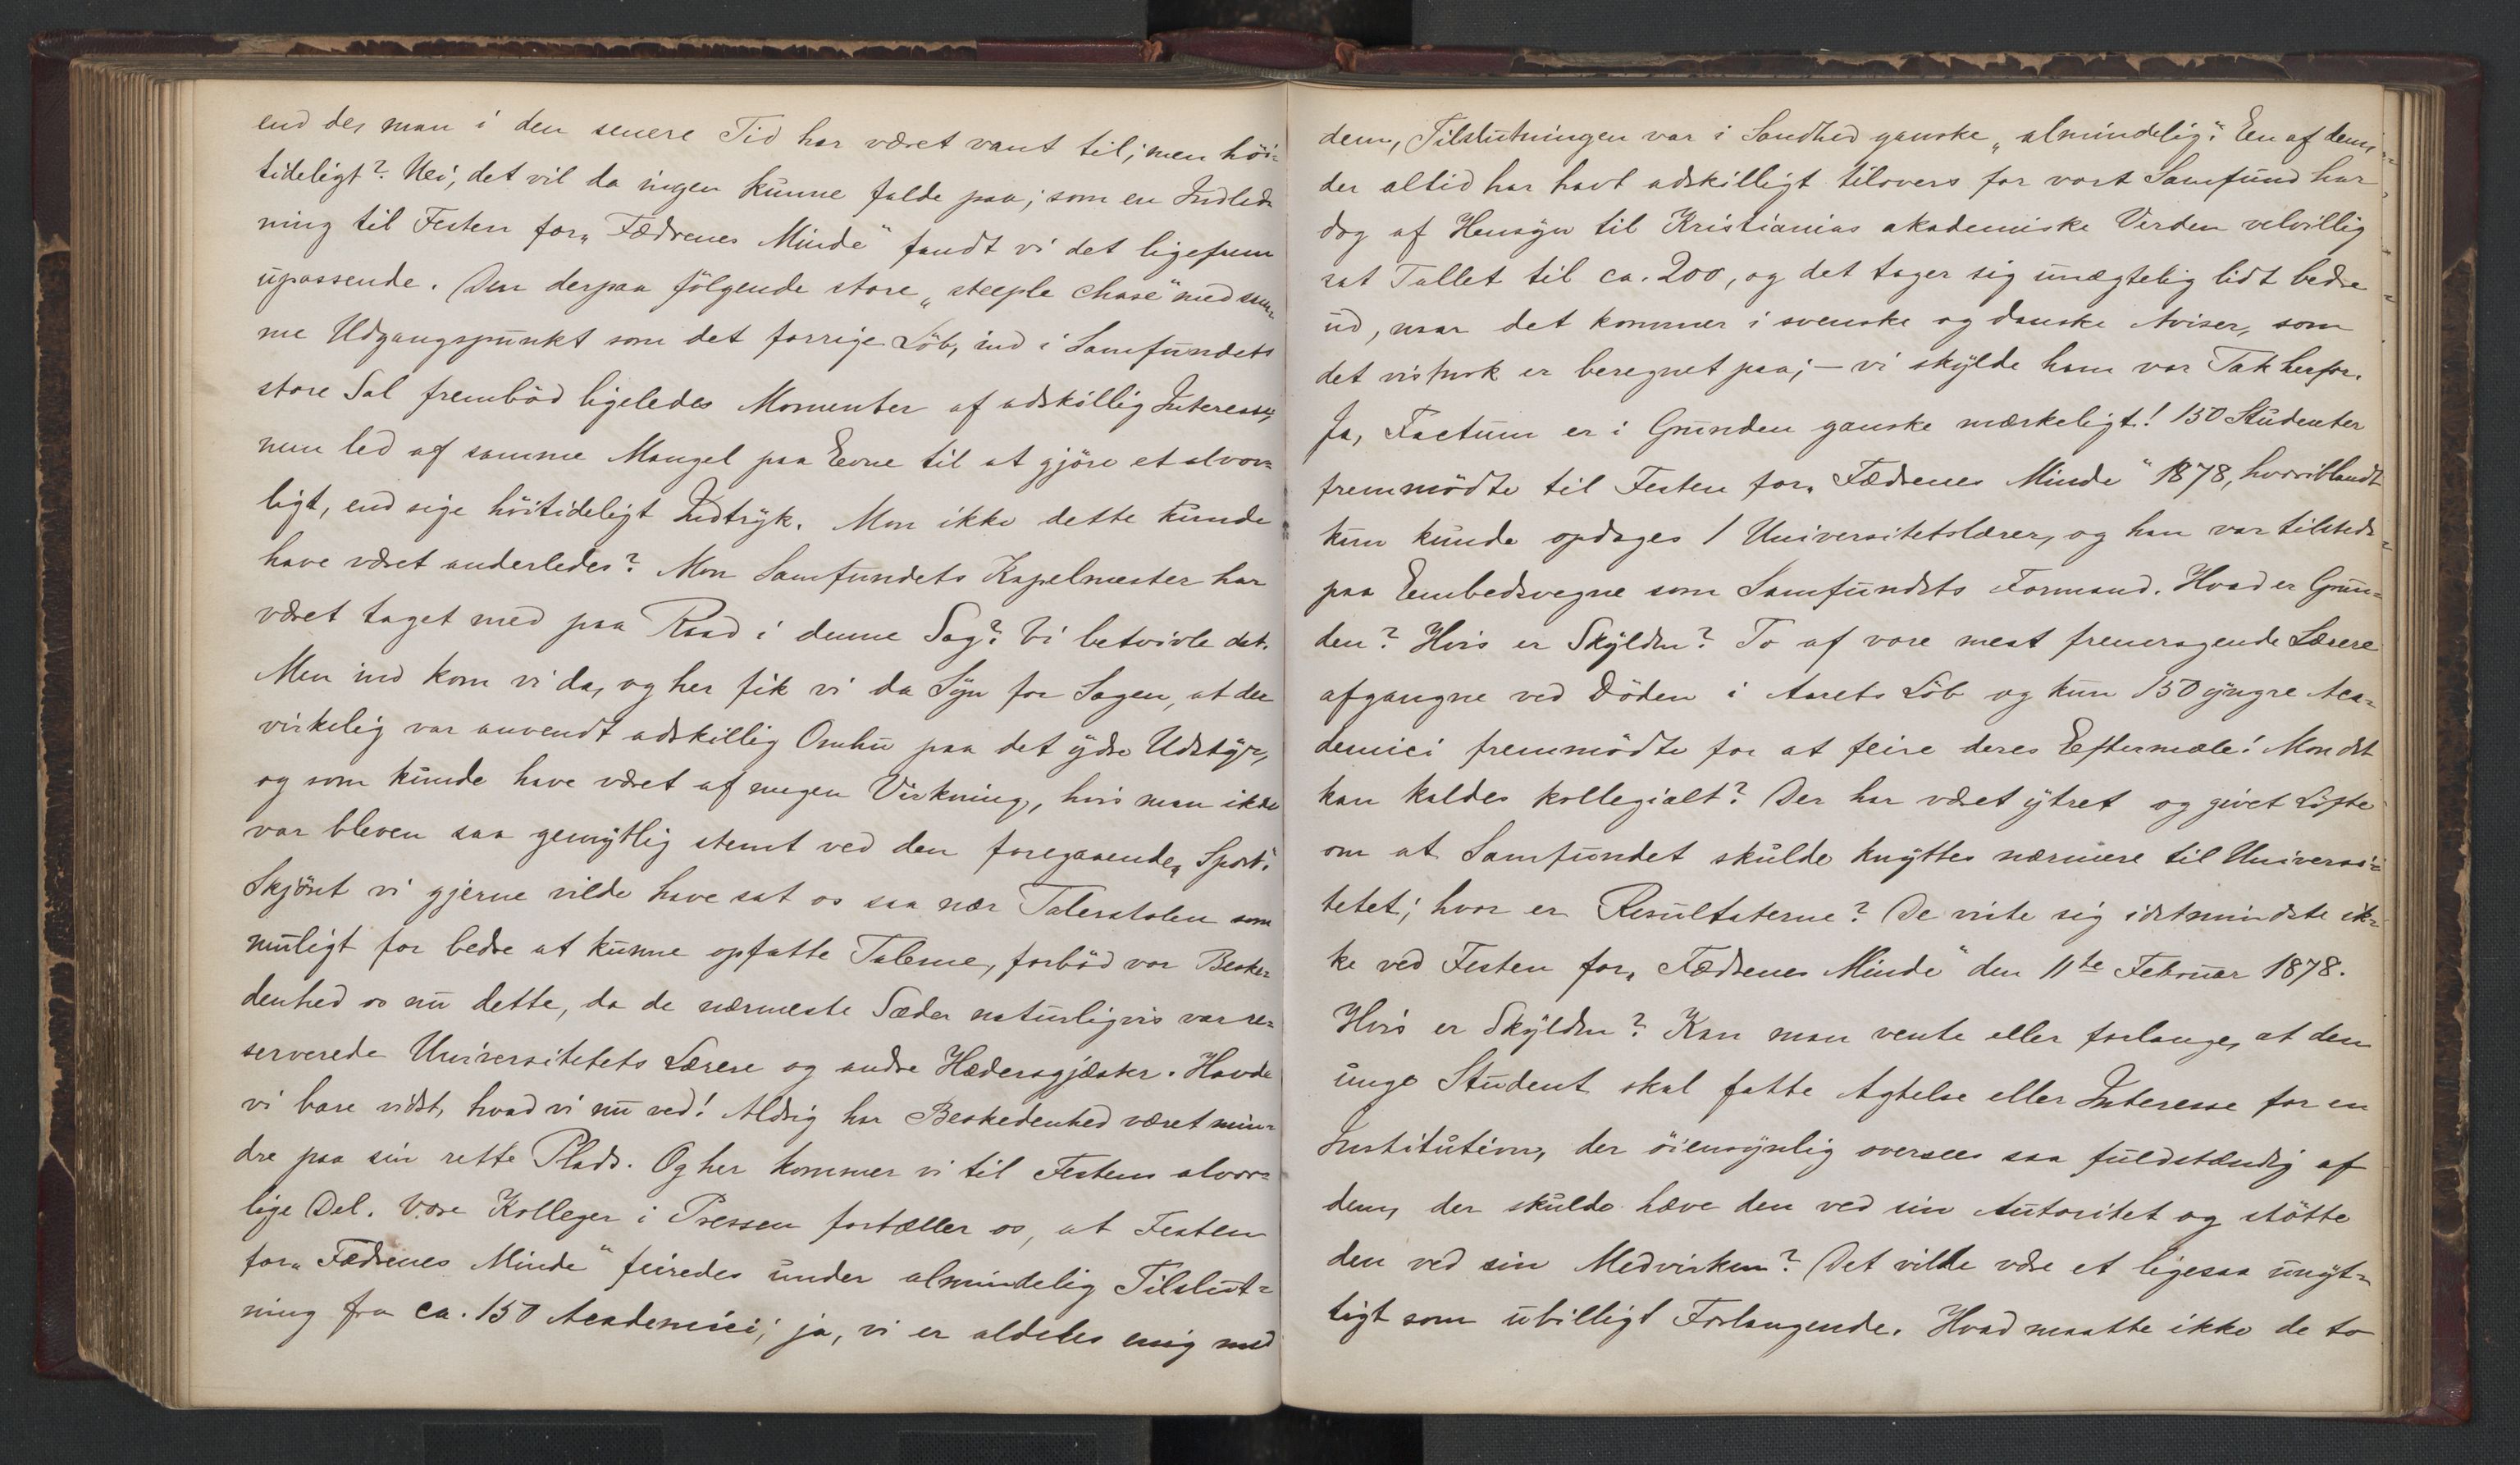 end des man i den senere Tid har været vant til; men höi-
tideligt? Nei, det vil da ingen kunne falde paa; som en Indled-
ning til Festen for „Fædrenes Minde“ fandt vi det ligefrem
upassende. Den derpaa fölgende store „steeple chase“ med sam-
me Udgangspunkt som det forrige Löb, ind i Samfundets
store Sal frembōd ligeledes Momenter af adskillig Interesse,
men led af samme Mangel paa Evne til at gjöre et alvor-
ligt, end sige höitideligt Indtryk. Mon ikke dette kunde
have været anderledes? Mon Samfundets Kapelmester har
været taget med paa Raad i denne Sag? Vi betvivle det.
Men ind kom vi da, og her fik vi da Syn for Sagen, at der
virkelig var anvendt adskillig Omhu paa det ydre Udstyr,
og som kunde have været af megen Virkning, hvis man ikke
var bleven saa gemytlig stemt ved den foregaaende „Sport“.
Skjönt vi gjerne vilde have sat os saa nær Talerstolen som
muligt for bedre at kunne opfatte Talerne, forböd vor Beske-
denhed os nu dette, da de nærmeste Sæder naturligvis var re-
serverede Universitetets Lærere og andre Hædersgjæster. Havde
vi bare vidst, hvad vi nu ved! Aldrig har Beskedenhed været min-
dre paa sin rette Plads. Og her kommer vi til Festens alvor-
lige Del. Vore Kolleger i Pressen fortæller os, at Festen
for „Fædrenes Minde“ feiredes under almindelig Tilslut-
ning fra ca. 150 Academici; ja, vi er aldeles enig med
dem, Tilslutningen var i Sandhed ganske „almindelig“. En af dem,
der altid har havt adskilligt tilovers for vort Samfund har
dog af Hensyn til Kristianias akademiske Verden velvillig
sat Tallet til ca. 200, og det tager sig unægtelig lidt bedre
ud, naar det kommer i svenske og danske Aviser, som
det vistnok er beregnet paa; – vi skylde ham vor Tak herfor.
Ja, Factum er i Grunden ganske mærkeligt! 150 Studenter
fremmödte til Festen for „Fædrenes Minde“ 1878, hvoriblandt
kun kunde opdages 1 Universitetslærer, og han var tilstede
paa Embedsvegne som Samfundets Formand. Hvad er Grun-
den? Hvis er Skylden? To af vore mest fremragende Lærere
afgangne ved Döden i Aarets Löb og kun 150 yngre Aca-
demici fremmödte for at feire deres Eftermæle! Mon det
kan kaldes kollegialt? Der har været ytret og givet Löfte
om at Samfundet skulde knyttes nærmere til Universi-
tetet; hvor er Resultaterne? De viste sig idetmindste ik-
ke ved Festen for „Fædrenes Minde“ den 11te Februar 1878.
Hvis er Skylden? Kan man vente eller forlange, at den
unge Student skal fatte Agtelse eller Interesse for en
Institution, der öiensynlig oversees saa fuldstændig af
dem, der skulde hæve den ved sin Autoritet og stötte
den ved sin Medvirken? Det vilde være et ligesaa unyt-
tigt som ubilligt Forlangende. Hvad maatte ikke de to